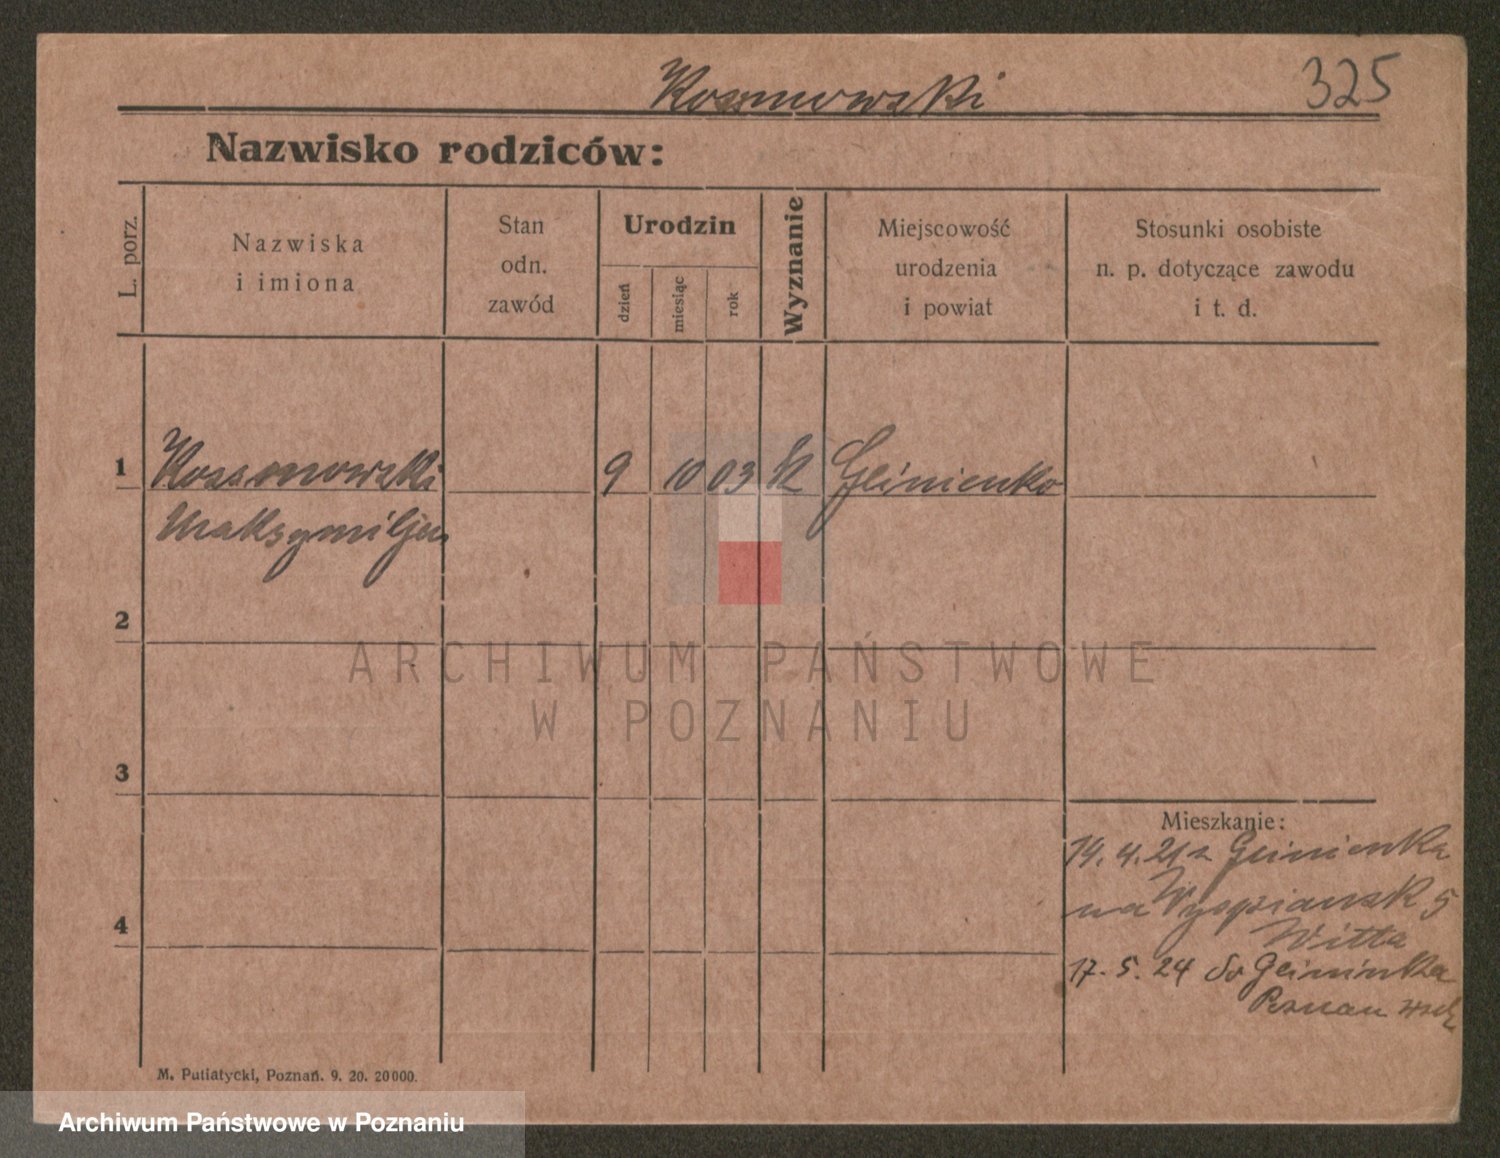 325
Kosmowski
Nazwisko rodziców:
L. porz.
Nazwiska
i imiona
Stan
odn.
zawód
Urodzin
dzień
miesiąc
rok
Wyznanie
Miejscowość
urodzenia
i powiat
Stosunki osobiste
n. p. dotyczące zawodu
i t. d.
1 Kosmowski 9 10 03 k Glinienko
Maksymiljan
2
3
4
Mieszkanie:
14. 4. 21 z Glinienka
na Wyspiańsk 5
Witta
17. 5. 24 do Glininka
Poznan wsch
M. Putiatycki, Poznań. 9. 20. 20000.
ARCHIWUM PAŃSTWOWE
W POZNANIU
Archiwum Państwowe w Poznaniu